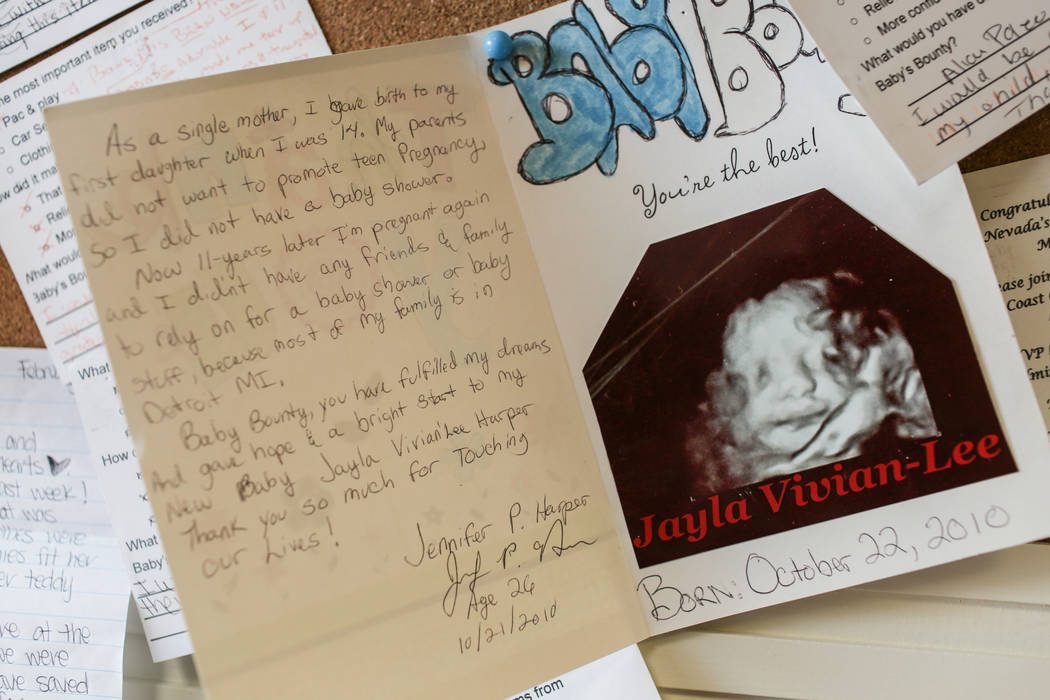 the most important item you received?
Pac & play
Car Se
Clothi
How did it ma
That
Relie
Mo
What would
Baby's Bou
As a single mother, I gave birth to my
first daughter when I was 14. My parents
did not want to promote teen Pregnancy,
so I did not have a baby shower.
Now 11-years later I'm pregnant again
and I didn't have any friends & family
to rely on for a baby shower or baby
stuff, because most of my family is in
Detroit MI.
Baby Bounty, you have fulfilled my dreams
And gave hope & a bright start to my
New Baby Jayla Vivian'Lee Harper
Thank you so much for Touching
our Lives!
Jennifer P. Harper
Age 26
10/21/2010
BABY Bo
You're the best!
Jayla Vivian-Lee
BORN: October 22, 2010
Relie
More confid
What would you have d
Baby's Bounty?
I would be
my child
Tha
Congratul
Nevada's
M
ease join
Coast
VP
dmi
Febru
and
Hearts
ast week!
at was
mes were
ies fit her
er teddy
ve at the
we were
ave saved
What
How
What
Baby'
ms from